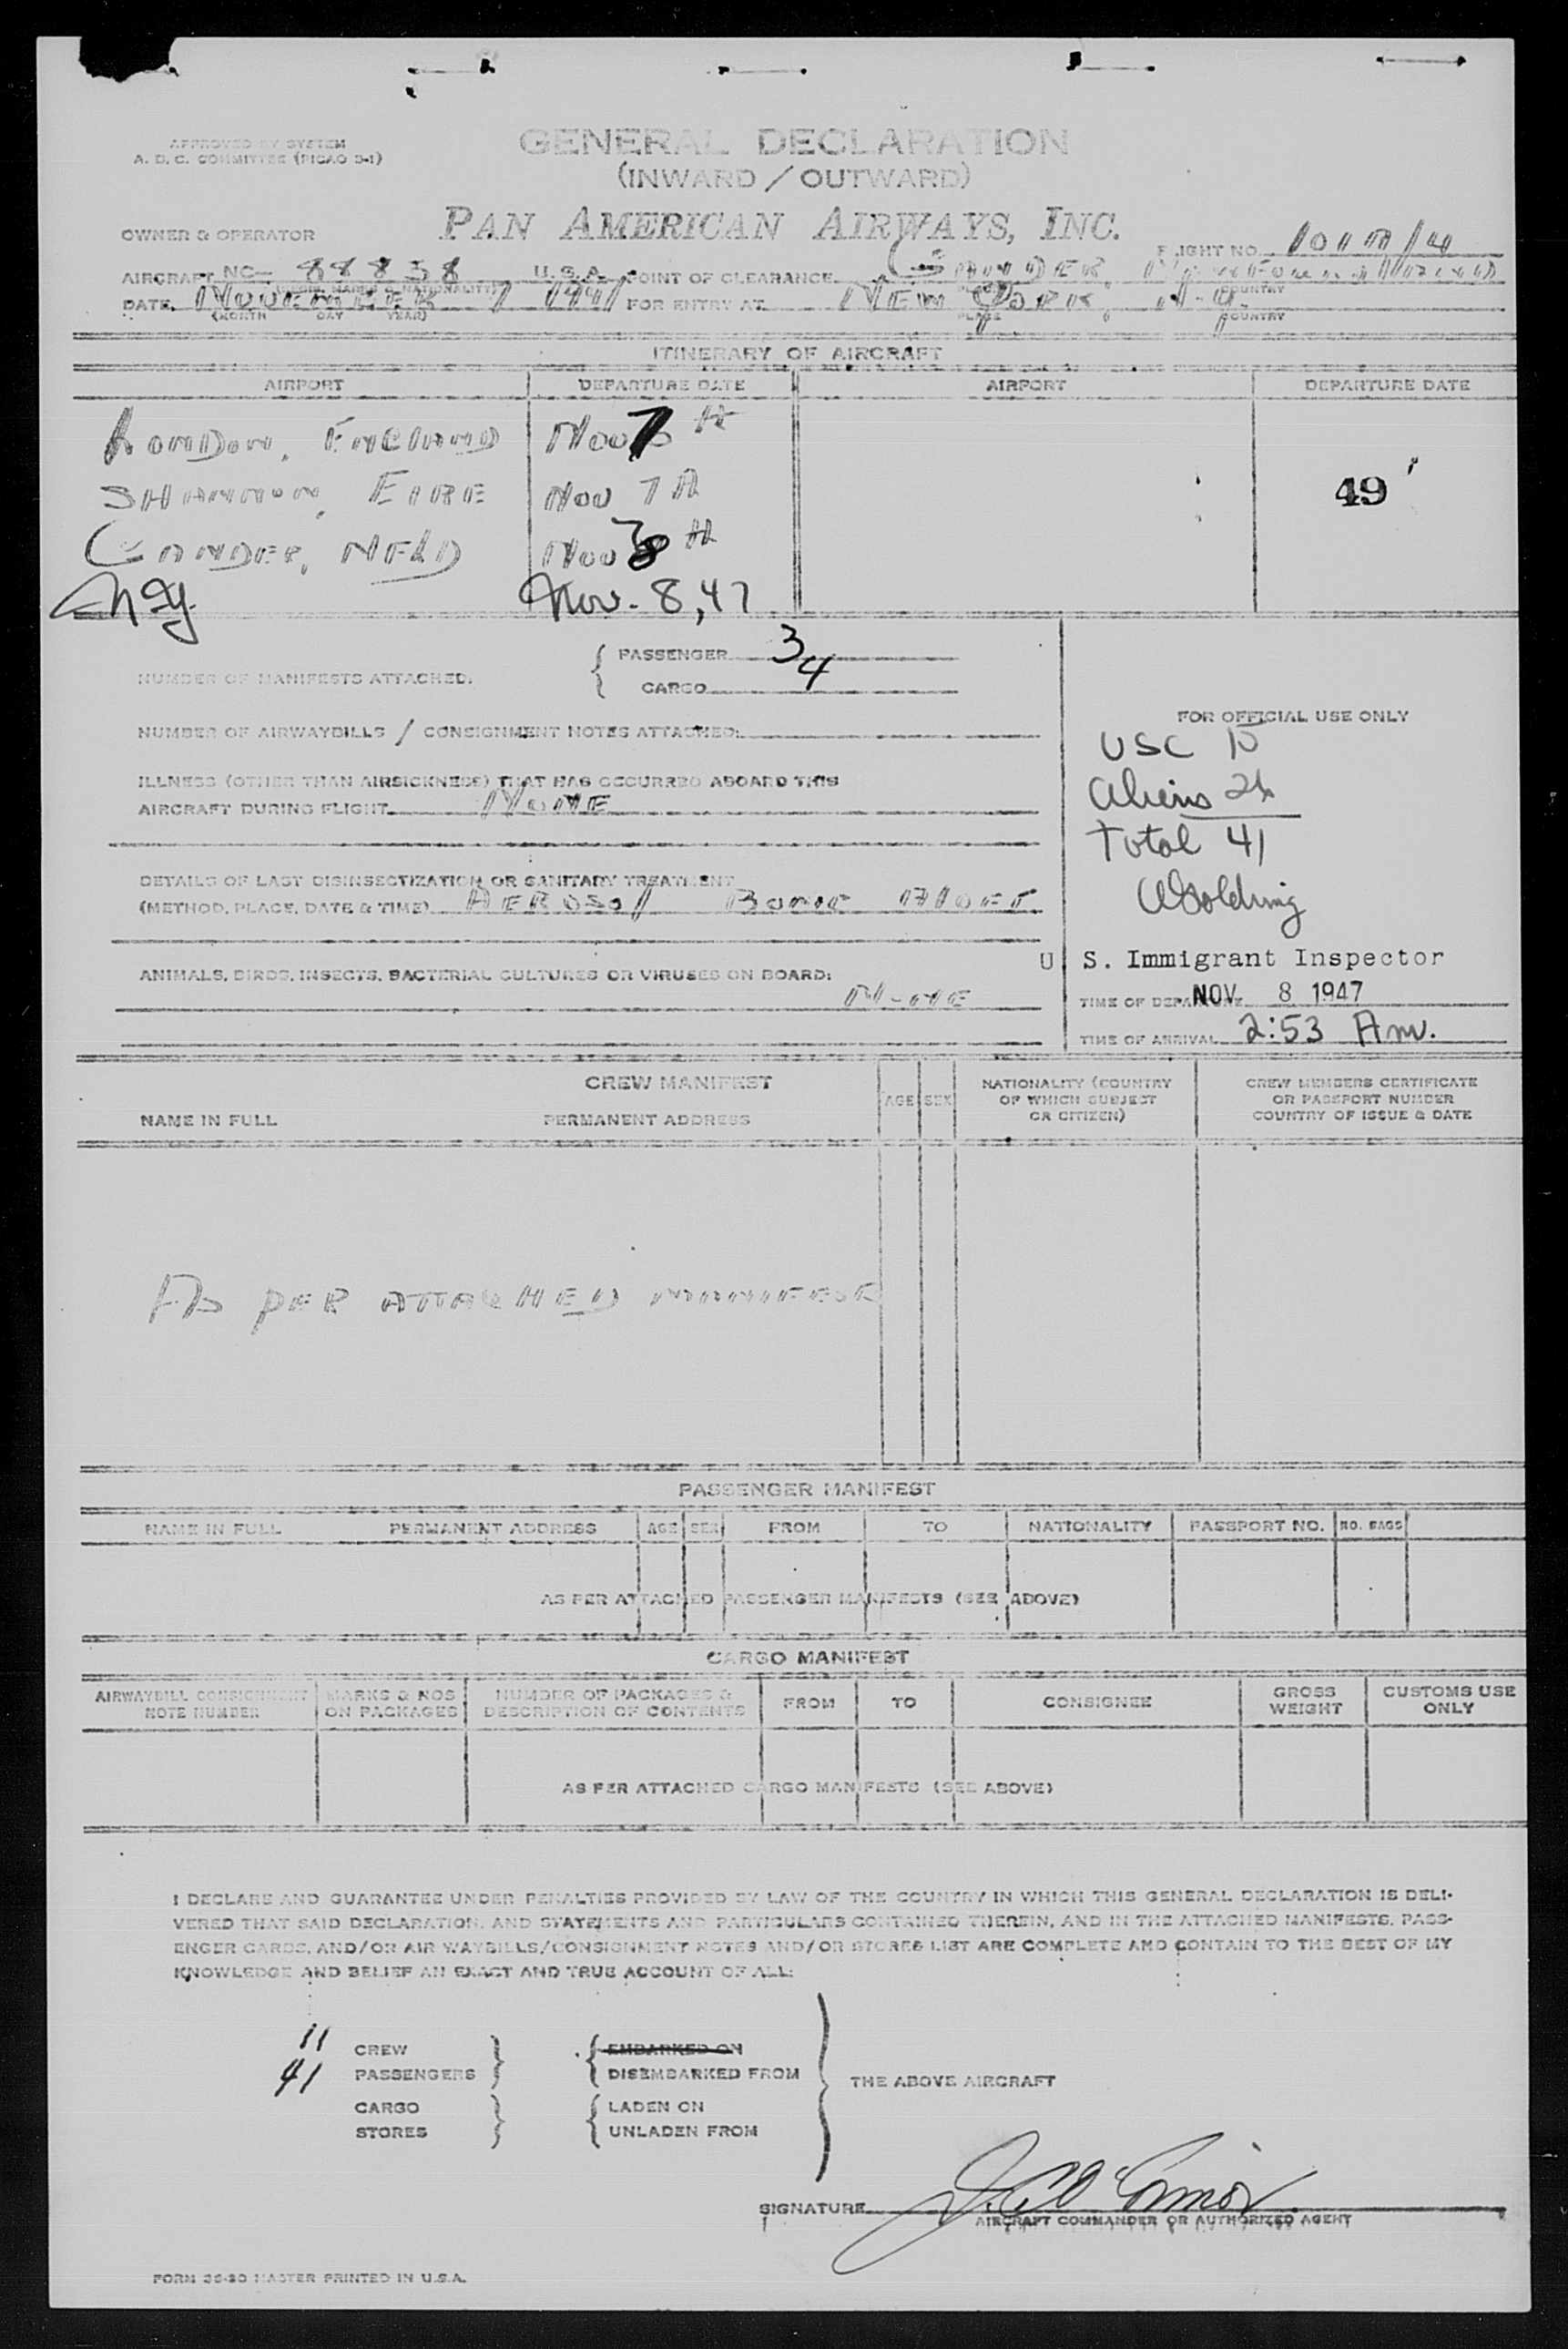 APPROVED BY SYSTEM
A. D. C. COMMITTEE (PICAO 3-1)
GENERAL DECLARATION
(INWARD / OUTWARD)
PAN AMERICAN AIRWAYS, INC.
OWNER & OPERATOR
FLIGHT NO.
AIRCRAFT NC- 88858 U. S. A. POINT OF CLEARANCE GANDER, NEWFOUNDLAND
DATE NOVEMBER 7 1947 FOR ENTRY AT NEW YORK, N.Y.
(MONTH DAY YEAR) PLACE COUNTRY
ITINERARY OF AIRCRAFT
AIRPORT DEPARTURE DATE AIRPORT DEPARTURE DATE
LONDON, ENGLAND NOV 7 TH
SHANNON, EIRE NOV 7 TH
49
GANDER, NFLD NOV 8 TH
N.Y. Nov. 8, 47
NUMBER OF MANIFESTS ATTACHED: PASSENGER 3
CARGO 4
NUMBER OF AIRWAYBILLS / CONSIGNMENT NOTES ATTACHED:
ILLNESS (OTHER THAN AIRSICKNESS) THAT HAS OCCURRED ABOARD THIS
AIRCRAFT DURING FLIGHT NONE
DETAILS OF LAST DISINSECTIZATION OR SANITARY TREATMENT
(METHOD, PLACE, DATE & TIME) AEROSOL ALOFT
ANIMALS, BIRDS, INSECTS, BACTERIAL CULTURES OR VIRUSES ON BOARD:
NONE
FOR OFFICIAL USE ONLY
USC
Aliens
Total 41
U S. Immigrant Inspector
TIME OF DEPARTURE NOV 8 1947
TIME OF ARRIVAL 2:53 Am.
CREW MANIFEST
NAME IN FULL PERMANENT ADDRESS AGE SEX NATIONALITY (COUNTRY OF WHICH SUBJECT OR CITIZEN) CREW MEMBERS CERTIFICATE OR PASSPORT NUMBER COUNTRY OF ISSUE & DATE
AS PER ATTACHED MANIFEST
PASSENGER MANIFEST
NAME IN FULL PERMANENT ADDRESS AGE SEX FROM TO NATIONALITY PASSPORT NO. NO. BAGS
AS PER ATTACHED PASSENGER MANIFESTS (SEE ABOVE)
CARGO MANIFEST
AIRWAYBILL CONSIGNMENT NOTE NUMBER MARKS & NOS ON PACKAGES NUMBER OF PACKAGES & DESCRIPTION OF CONTENTS FROM TO CONSIGNEE GROSS WEIGHT CUSTOMS USE ONLY
AS PER ATTACHED CARGO MANIFESTS (SEE ABOVE)
I DECLARE AND GUARANTEE UNDER PENALTIES PROVIDED BY LAW OF THE COUNTRY IN WHICH THIS GENERAL DECLARATION IS DELI-
VERED THAT SAID DECLARATION, AND STATEMENTS AND PARTICULARS CONTAINED THEREIN, AND IN THE ATTACHED MANIFESTS, PASS-
ENGER CARDS, AND/OR AIR WAYBILLS/CONSIGNMENT NOTES AND/OR STORES LIST ARE COMPLETE AND CONTAIN TO THE BEST OF MY
KNOWLEDGE AND BELIEF AN EXACT AND TRUE ACCOUNT OF ALL:
11 CREW EMBARKED ON
41 PASSENGERS DISEMBARKED FROM
THE ABOVE AIRCRAFT
CARGO LADEN ON
STORES UNLADEN FROM
SIGNATURE
AIRCRAFT COMMANDER OR AUTHORIZED AGENT
FORM 36-20 MASTER PRINTED IN U.S.A.